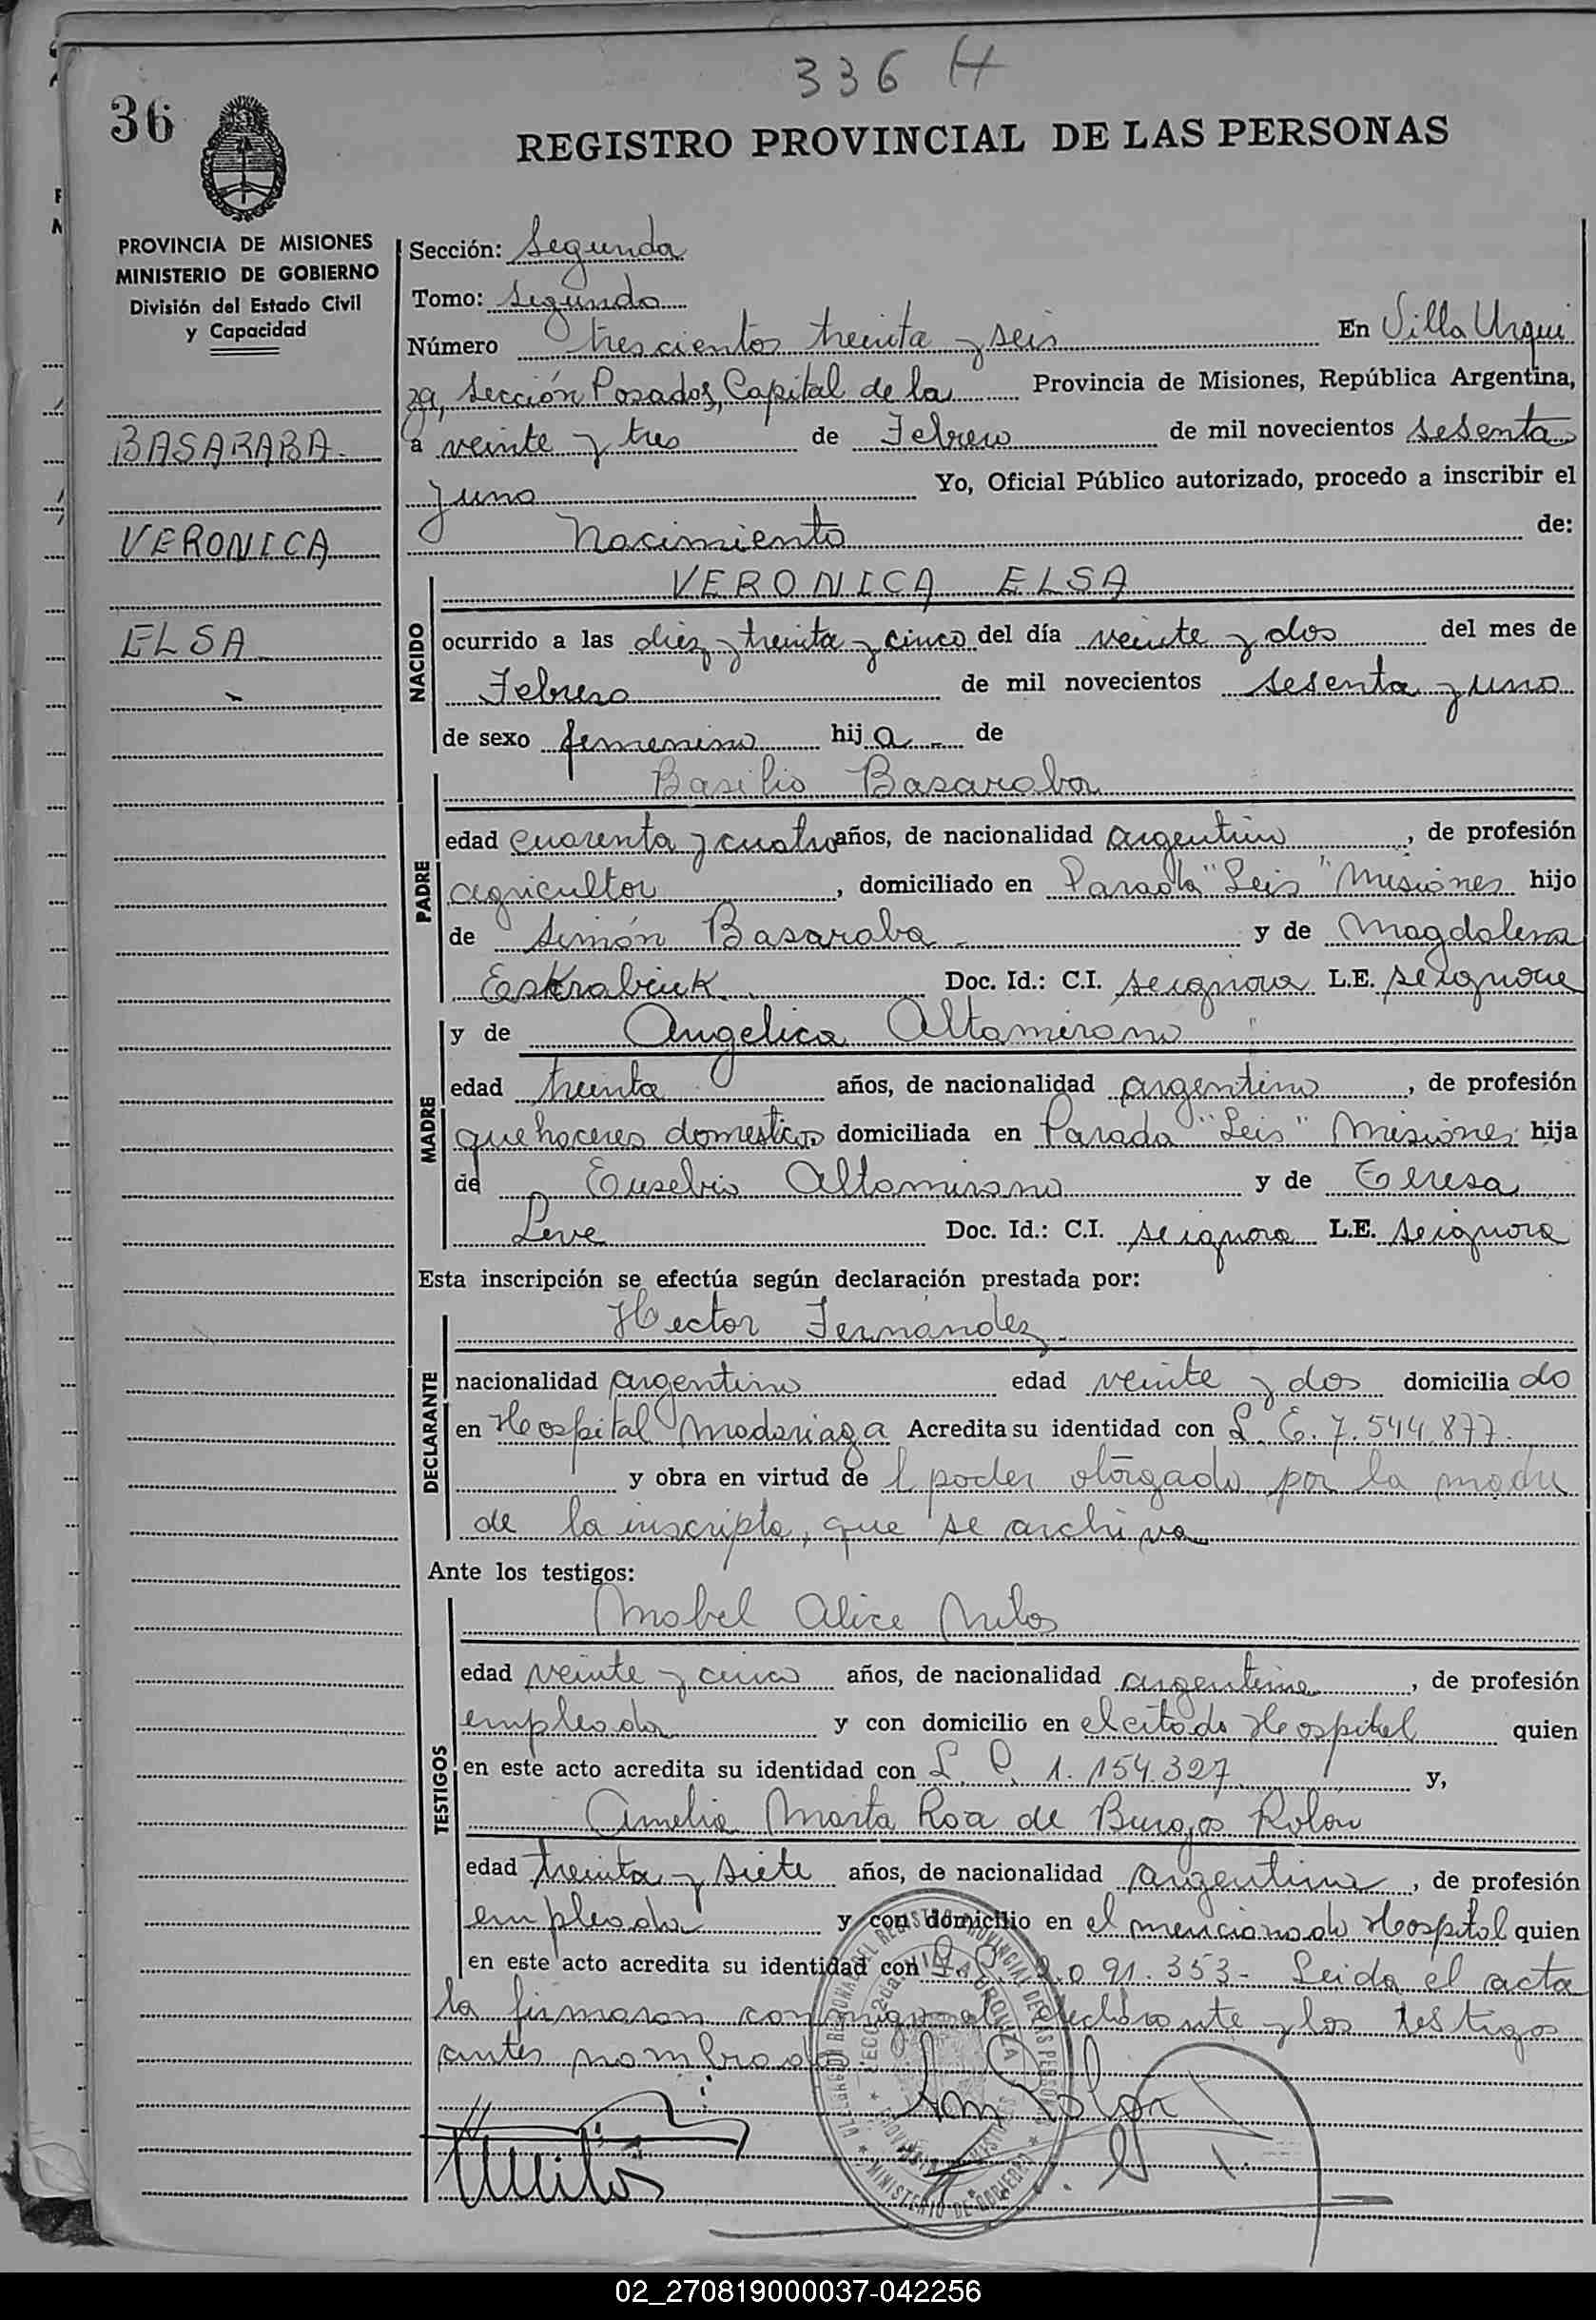 336 H
36
REGISTRO PROVINCIAL DE LAS PERSONAS
PROVINCIA DE MISIONES
MINISTERIO DE GOBIERNO
División del Estado Civil
y Capacidad
BASARABA
VERONICA
ELSA
Sección: Segunda
Tomo: Segundo
Número trescientos treinta y seis En Villa Urqui
za, Sección Posadas, Capital de la Provincia de Misiones, República Argentina,
a veinte y tres de Febrero de mil novecientos sesenta
y uno Yo, Oficial Público autorizado, procedo a inscribir el
Nacimiento de:
NACIDO
VERONICA ELSA
ocurrido a las diez y treinta y cinco del día veinte y dos del mes de
Febrero de mil novecientos sesenta y uno
de sexo femenino hija de
PADRE
Basilio Basaraba
edad cuarenta y cuatro años, de nacionalidad argentino, de profesión
agricultor, domiciliado en Parada "Seis" Misiones hijo
de Simón Basaraba y de Magdalena
Doc. Id.: C.I. se ignora L.E. se ignora
MADRE
y de Angelica Altamirano
edad treinta años, de nacionalidad argentina, de profesión
quehaceres domesticos domiciliada en Parada "Seis" Misiones hija
de Eusebio Altamirano y de Teresa
Leve Doc. Id.: C.I. se ignora L.E. se ignora
Esta inscripción se efectúa según declaración prestada por:
DECLARANTE
Hector Fernández
nacionalidad argentino edad veinte y dos domiciliado
en Hospital Madariaga Acredita su identidad con L. E. 7.544.877
y obra en virtud de l poder otorgado por la madre
de la inscripta, que se archiva
Ante los testigos:
TESTIGOS
Mabel Alice Milos
edad veinte y cinco años, de nacionalidad argentina, de profesión
empleada y con domicilio en el citado Hospital quien
en este acto acredita su identidad con L. C. 1.154.327 y,
Amelia Marta Roa de Burgos Rolon
edad treinta y siete años, de nacionalidad argentina, de profesión
empleada y con domicilio en el mencionado Hospital quien
en este acto acredita su identidad con 091.353- Leida el acta
la firmaron conmigo el declarante y los testigos
antes nombrados
02_270819000037-042256